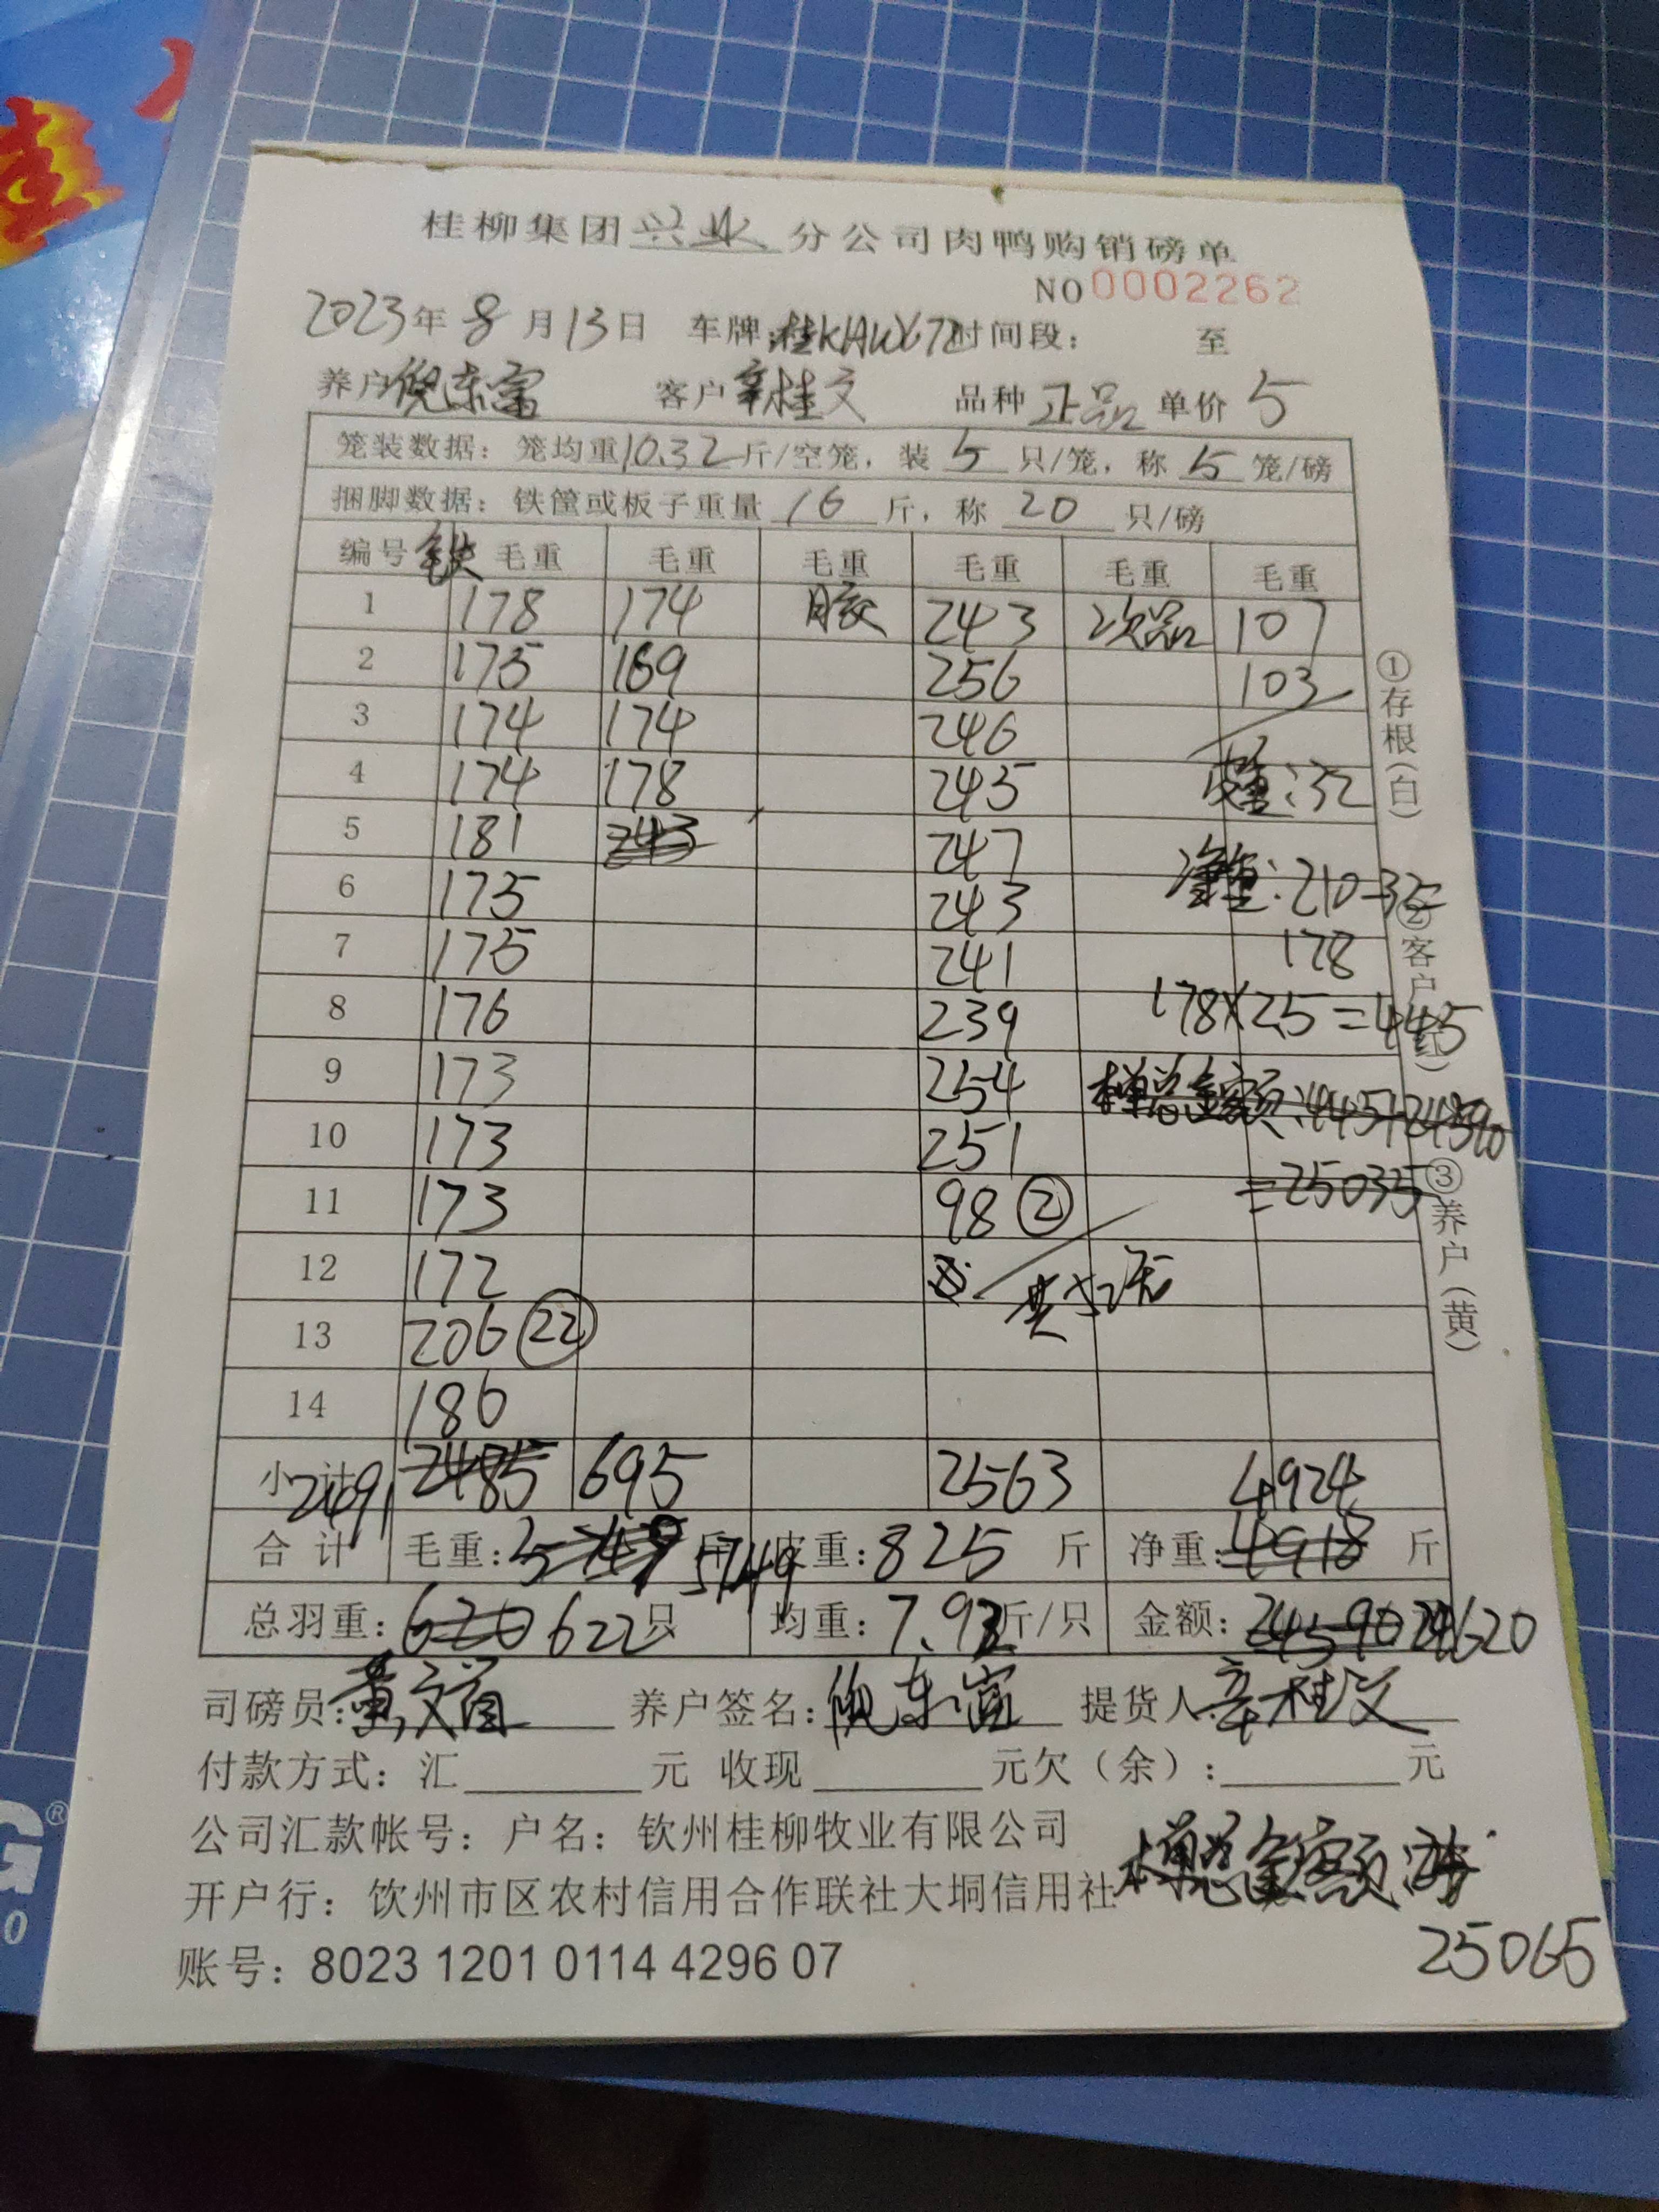 桂柳集团兴业分公司肉鸭购销磅单
NO 0002262
2023年8月13日 车牌:桂KHW672 时间段: 至
养户 倪东富 客户 辛桂文 品种 正品 单价 5
笼装数据:笼均重10.32斤/空笼,装5只/笼,称5笼/磅
捆脚数据:铁筐或板子重量16斤,称20只/磅
编号 铁 毛重 毛重 毛重 毛重 毛重 毛重
1 178 174 胶 243 次品 107
2 175 169 256 103
3 174 174 246
4 174 178 245 皮重:32
5 181 243 247
6 175 243 净重:210-32=
7 175 241 178
8 176 239 178X2.5=445
9 173 254 横总金额:445+24590
10 173 251 =25035
11 173 98 ②
12 172 共52笼
13 206 ㉒
14 186
小计 2491 2485 695 2563 4924
合计 毛重: 5749斤 皮重:825斤 净重:4918斤
总羽重:620 622只 均重:7.92斤/只 金额:24590 24620
司磅员: 黄文 养户签名:倪东富 提货人 辛桂文
付款方式:汇 元 收现 元欠(余): 元
公司汇款帐号:户名:钦州桂柳牧业有限公司
开户行:饮州市区农村信用合作联社大垌信用社
总金额:
账号:8023 1201 0114 4296 07
25065
①存根(白)
②客户(红)
③养户(黄)
G®
0